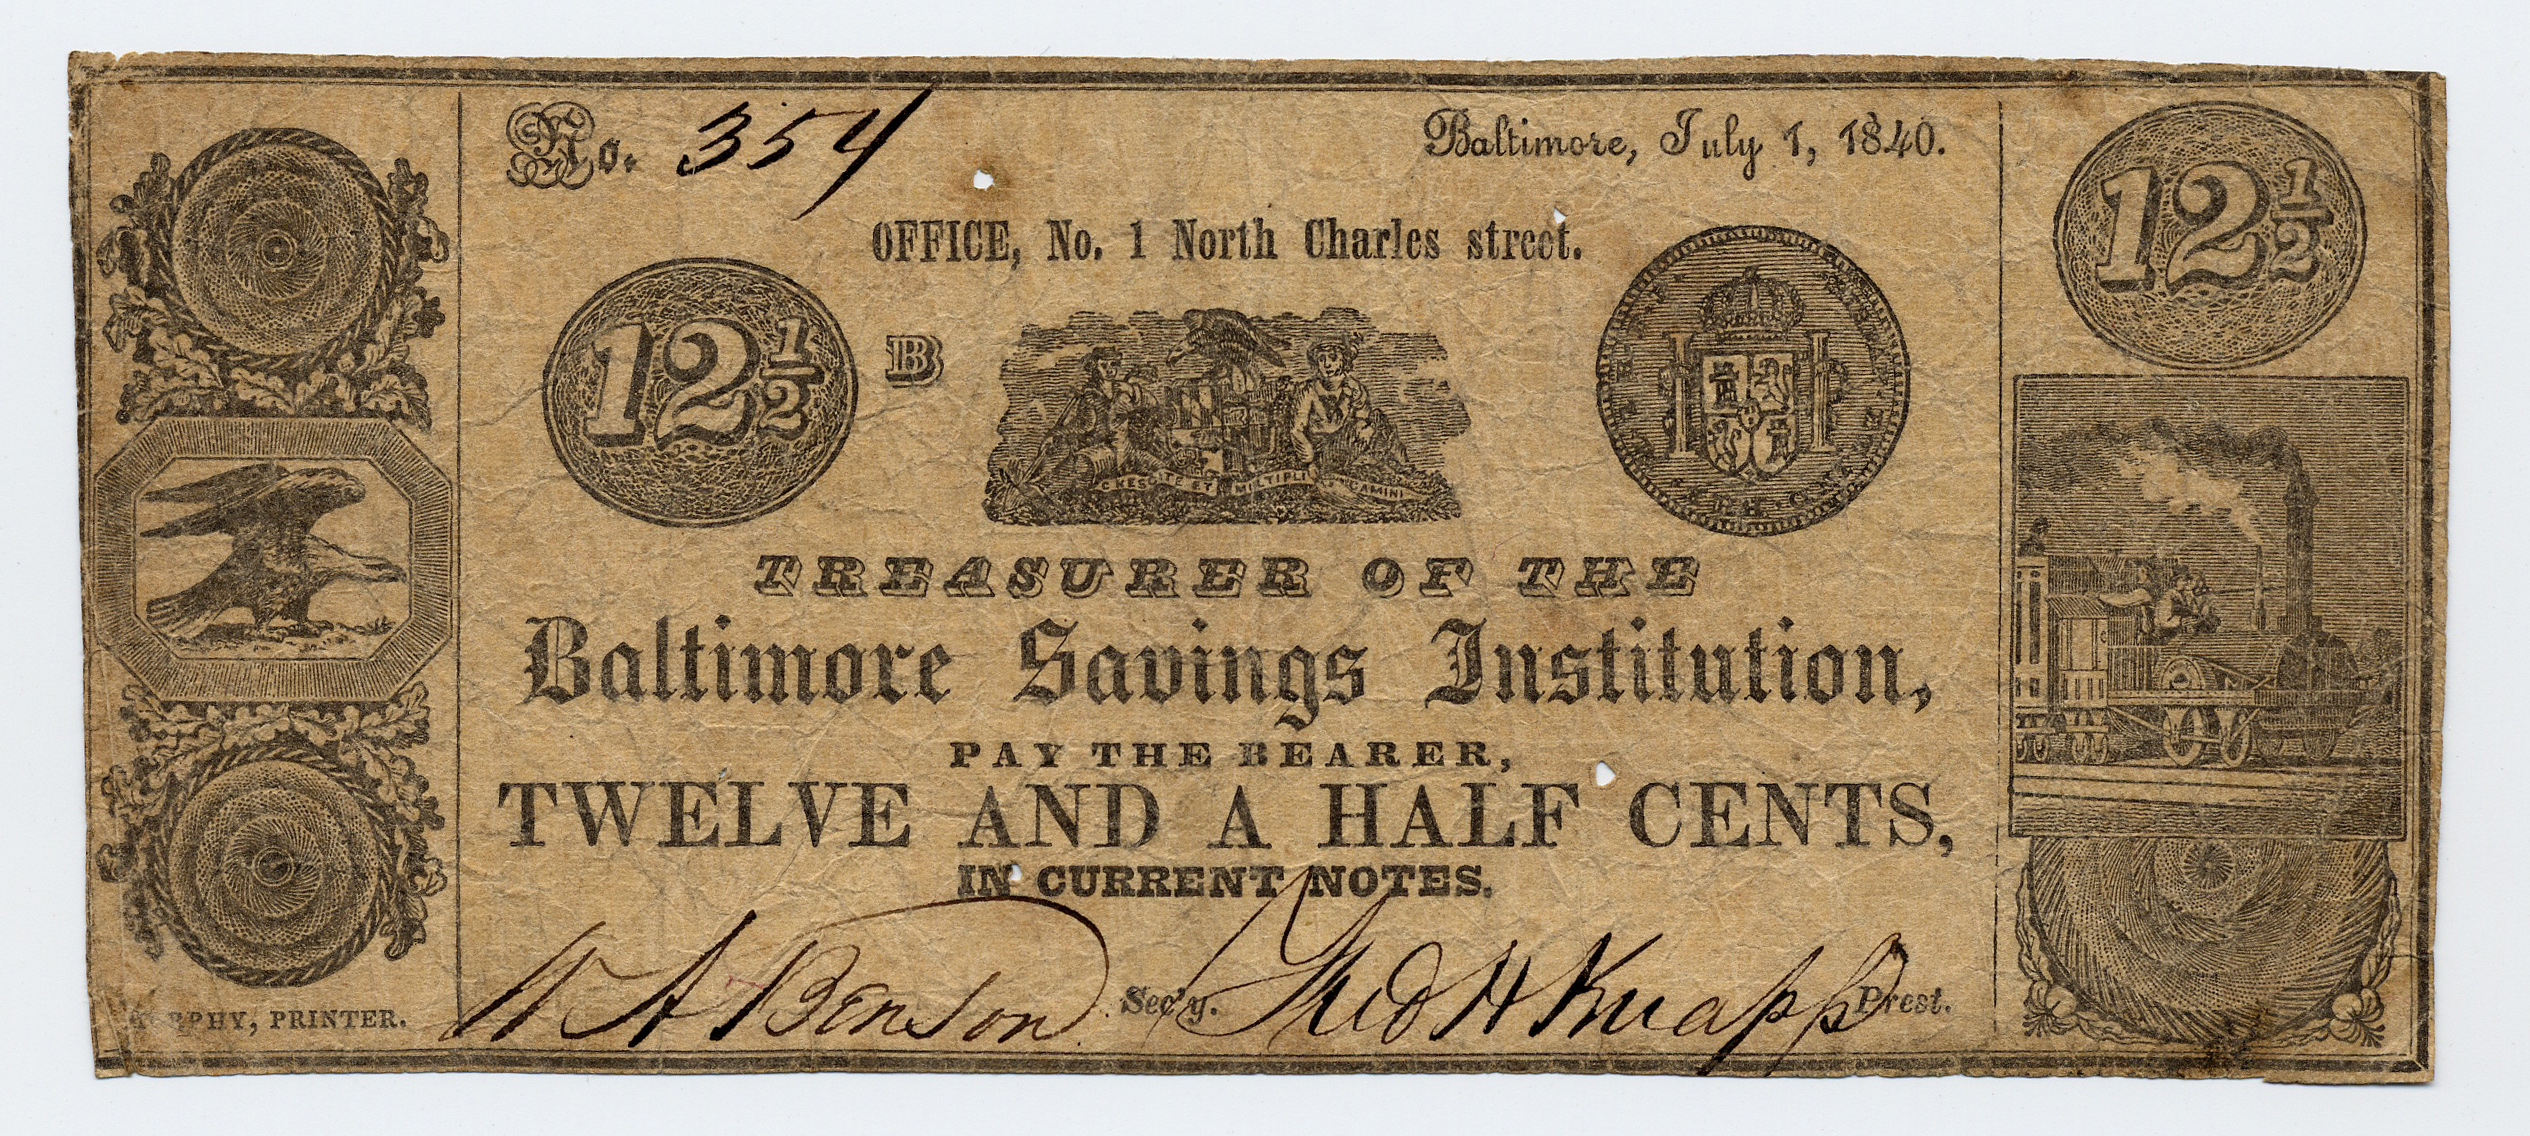 No. 354
Baltimore, July 1, 1840.
OFFICE, No. 1 North Charles street.
12 1/2
12 1/2
B
TREASURER OF THE
Baltimore Savings Institution,
PAY THE BEARER,
TWELVE AND A HALF CENTS,
IN CURRENT NOTES.
Benson Sec'y. H Knapp Prest.
PRINTER.